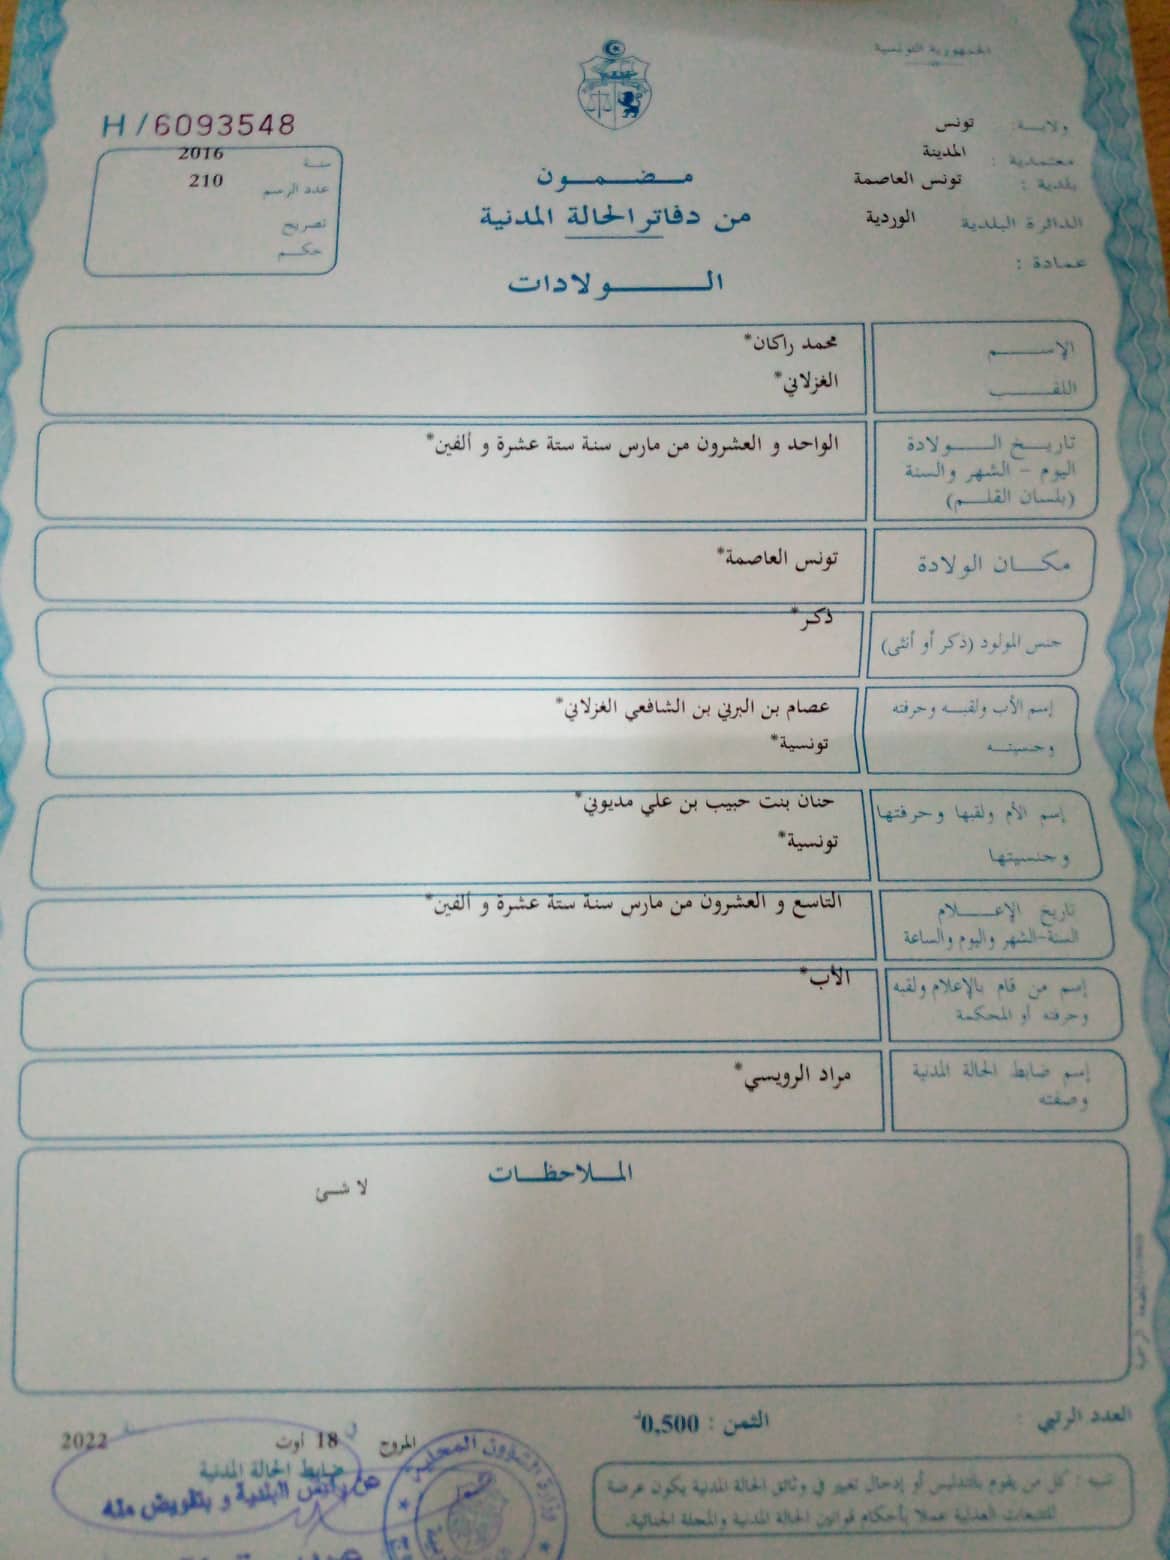 الجمهورية التونسية
H/6093548
ولاية: تونس
معتمدية : المدينة
بلدية : تونس العاصمة
الدائرة البلدية الوردية
عمادة :
سنة 2016
عدد الرسم 210
تصريح
حكم
مضمون
من دفاتر الحالة المدنية
الولادات
الإسم محمد راكان*
اللقب الغزلاني*
تاريخ الولادة الواحد و العشرون من مارس سنة ستة عشرة و ألفين*
اليوم - الشهر والسنة
(بلسان القلم)
مكان الولادة تونس العاصمة*
جنس المولود (ذكر أو أنثى) ذكر*
إسم الأب ولقبه وحرفته عصام بن البرني بن الشافعي الغزلاني*
وجنسيته تونسية*
إسم الأم ولقبها وحرفتها حنان بنت حبيب بن علي مديوني*
وجنسيتها تونسية*
تاريخ الإعلام التاسع و العشرون من مارس سنة ستة عشرة و ألفين*
السنة-الشهر واليوم والساعة
إسم من قام بالإعلام ولقبه الأب*
وحرفته أو المحكمة
إسم ضابط الحالة المدنية مراد الرويسي*
وصفته
الملاحظات
لا شئ
العدد الرتبي :
الثمن : 0,500د
المروج في 18 أوت سنة 2022
ضابط الحالة المدنية
عن رئيس البلدية و بتفويض منه
وزارة الشؤون المحلية
تنبيه : كل من يقوم بالتدليس أو إدخال تغيير في وثائق الحالة المدنية يكون عرضة
للتتبعات العدلية عملا بأحكام قوانين الحالة المدنية والمجلة الجنائية.